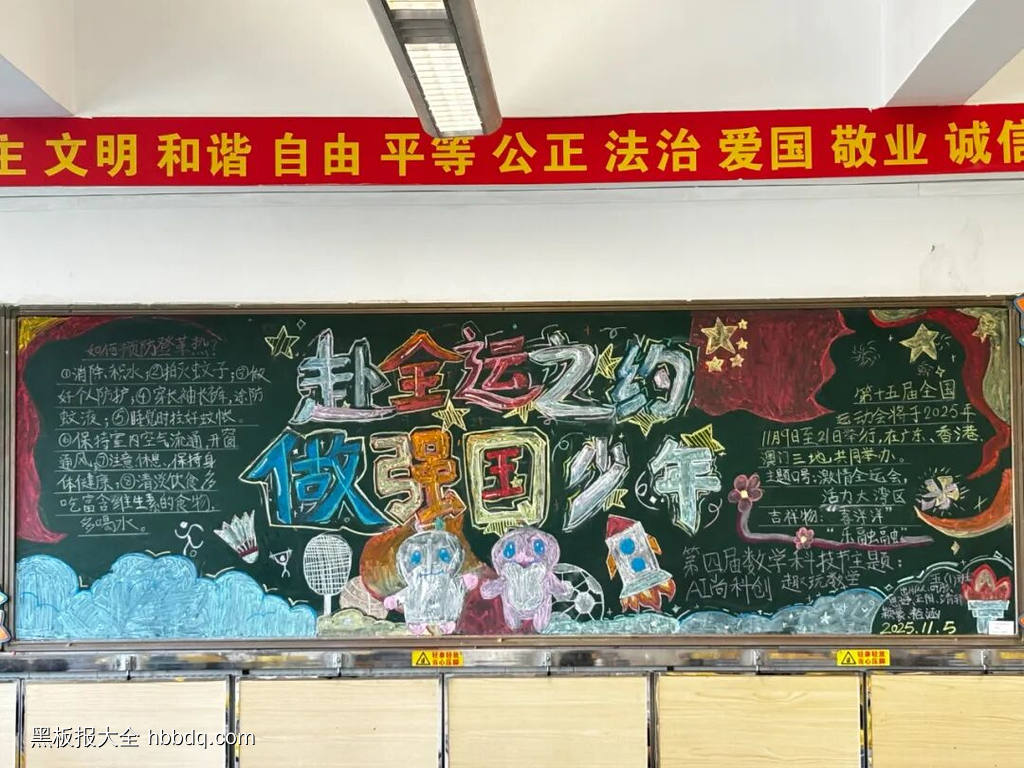 主 文明 和谐 自由 平等 公正 法治 爱国 敬业 诚信
赴全运之约
做强国少年
如何预防登革热?
①消除积水;②拍灭蚊子;③做
好个人防护;④穿长袖长裤,涂防
蚊液;⑤睡觉时挂好蚊帐。
⑥保持室内空气流通,开窗
通风,⑦注意休息,保持身
体健康,⑧清淡饮食,多
吃富含维生素的食物,
多喝水。
第十五届全国
运动会将于2025年
11月9日至21日举行,在广东、香港、
澳门三地,共同举办。
主题口号:激情全运会,
活力大湾区
吉祥物:“喜洋洋”
“乐融融”
第四届数学科技节主题:
AI尚科创 趣玩数学
2025.11.5
轻拿轻放
当心压脚
轻拿轻放
当心压脚
黑板报大全 hbbdq.com